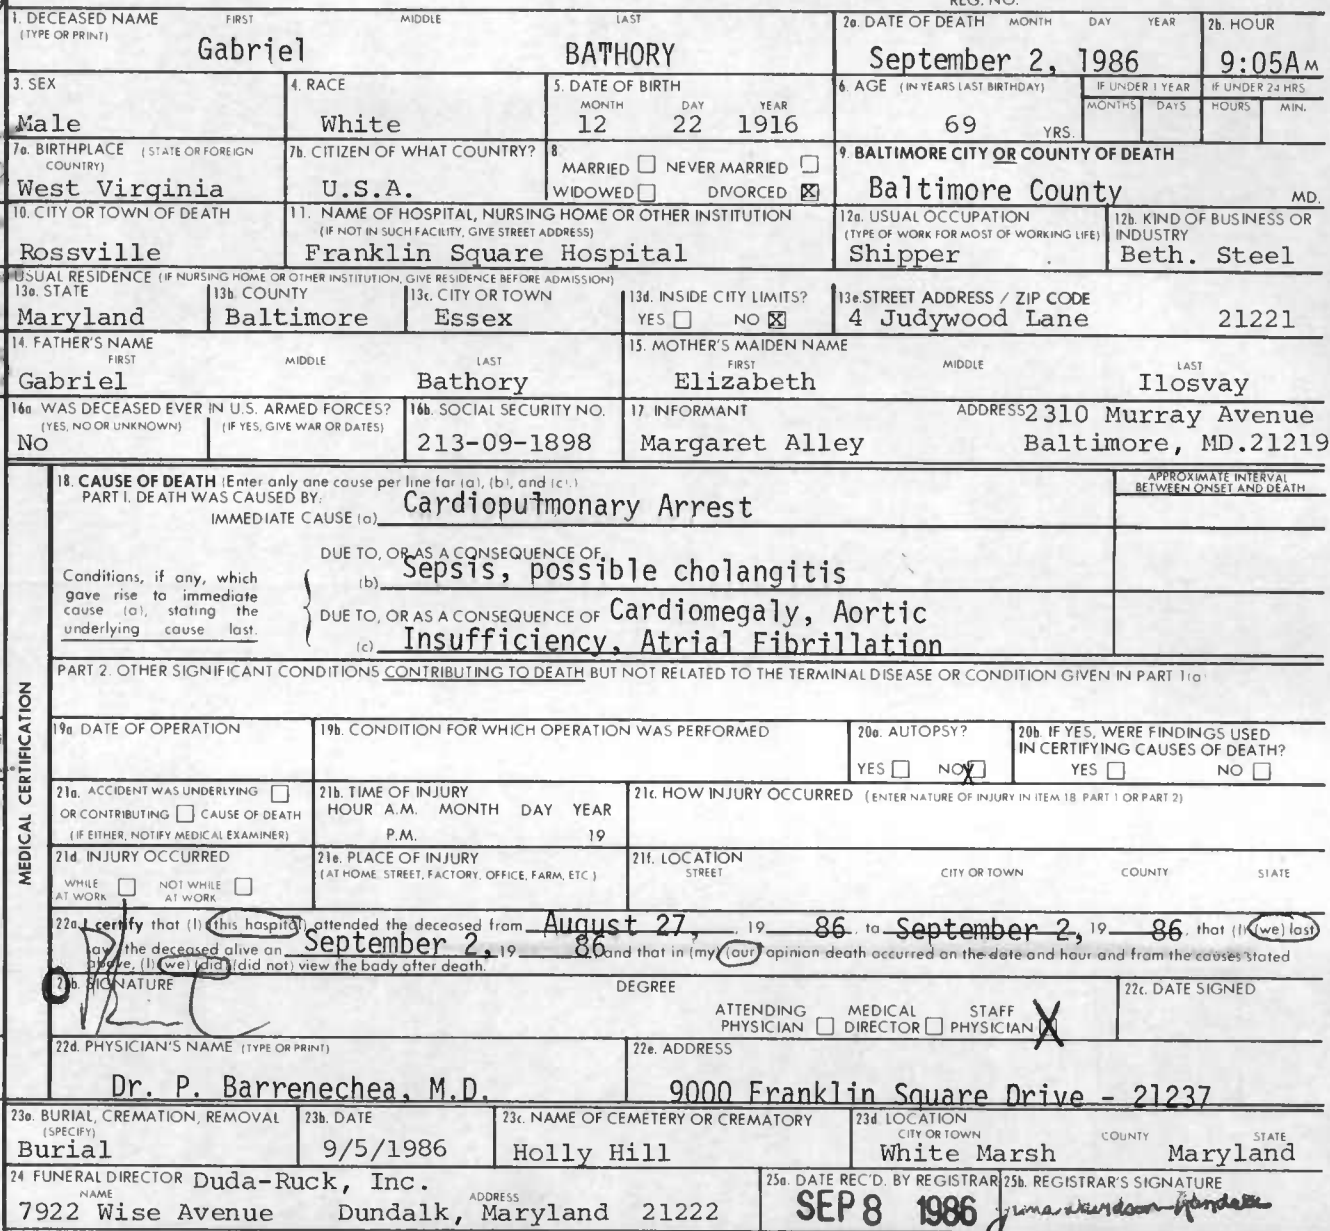 REG. NO.
1. DECEASED NAME FIRST MIDDLE LAST
(TYPE OR PRINT)
Gabriel BATHORY
2a. DATE OF DEATH MONTH DAY YEAR
September 2, 1986
2b. HOUR
9:05A M
3. SEX
Male
4. RACE
White
5. DATE OF BIRTH
MONTH DAY YEAR
12 22 1916
6. AGE (IN YEARS LAST BIRTHDAY)
69 YRS.
IF UNDER 1 YEAR
MONTHS DAYS
IF UNDER 24 HRS
HOURS MIN.
7a. BIRTHPLACE (STATE OR FOREIGN
COUNTRY)
West Virginia
7b. CITIZEN OF WHAT COUNTRY?
U.S.A.
8.
MARRIED ☐ NEVER MARRIED ☐
WIDOWED ☐ DIVORCED ☒
9. BALTIMORE CITY OR COUNTY OF DEATH
Baltimore County MD.
10. CITY OR TOWN OF DEATH
Rossville
11. NAME OF HOSPITAL, NURSING HOME OR OTHER INSTITUTION
(IF NOT IN SUCH FACILITY, GIVE STREET ADDRESS)
Franklin Square Hospital
12a. USUAL OCCUPATION
(TYPE OF WORK FOR MOST OF WORKING LIFE)
Shipper
12b. KIND OF BUSINESS OR
INDUSTRY
Beth. Steel
USUAL RESIDENCE (IF NURSING HOME OR OTHER INSTITUTION, GIVE RESIDENCE BEFORE ADMISSION)
13a. STATE
Maryland
13b. COUNTY
Baltimore
13c. CITY OR TOWN
Essex
13d. INSIDE CITY LIMITS?
YES ☐ NO ☒
13e. STREET ADDRESS / ZIP CODE
4 Judywood Lane 21221
14. FATHER'S NAME
FIRST MIDDLE LAST
Gabriel Bathory
15. MOTHER'S MAIDEN NAME
FIRST MIDDLE LAST
Elizabeth Ilosvay
16a WAS DECEASED EVER IN U.S. ARMED FORCES?
(YES, NO OR UNKNOWN) (IF YES, GIVE WAR OR DATES)
No
16b. SOCIAL SECURITY NO.
213-09-1898
17. INFORMANT ADDRESS 2310 Murray Avenue
Margaret Alley Baltimore, MD.21219
MEDICAL CERTIFICATION
18. CAUSE OF DEATH (Enter only one cause per line for (a), (b), and (c).)
PART I. DEATH WAS CAUSED BY:
IMMEDIATE CAUSE (a) Cardiopulmonary Arrest
APPROXIMATE INTERVAL
BETWEEN ONSET AND DEATH
Conditions, if any, which
gave rise to immediate
cause (a), stating the
underlying cause last.
DUE TO, OR AS A CONSEQUENCE OF
(b) Sepsis, possible cholangitis
DUE TO, OR AS A CONSEQUENCE OF Cardiomegaly, Aortic
(c) Insufficiency, Atrial Fibrillation
PART 2. OTHER SIGNIFICANT CONDITIONS CONTRIBUTING TO DEATH BUT NOT RELATED TO THE TERMINAL DISEASE OR CONDITION GIVEN IN PART 1(a)
19a DATE OF OPERATION
19b. CONDITION FOR WHICH OPERATION WAS PERFORMED
20a. AUTOPSY?
YES ☐ NO ☒
20b. IF YES, WERE FINDINGS USED
IN CERTIFYING CAUSES OF DEATH?
YES ☐ NO ☐
21a. ACCIDENT WAS UNDERLYING ☐
OR CONTRIBUTING ☐ CAUSE OF DEATH
(IF EITHER, NOTIFY MEDICAL EXAMINER)
21b. TIME OF INJURY
HOUR A.M. MONTH DAY YEAR
P.M. 19
21c. HOW INJURY OCCURRED (ENTER NATURE OF INJURY IN ITEM 18 PART 1 OR PART 2)
21d INJURY OCCURRED
WHILE ☐ NOT WHILE ☐
AT WORK AT WORK
21e. PLACE OF INJURY
(AT HOME STREET, FACTORY, OFFICE, FARM, ETC)
21f. LOCATION
STREET CITY OR TOWN COUNTY STATE
22a. I certify that (I) (this hospital) attended the deceased from August 27, 19 86 to September 2, 19 86, that (I) (we) last
saw the deceased alive on September 2, 19 86 and that in (my) (our) opinion death occurred on the date and hour and from the causes stated
above, (I) (we) (did) (did not) view the body after death.
22b. SIGNATURE DEGREE
ATTENDING MEDICAL STAFF
PHYSICIAN ☐ DIRECTOR ☐ PHYSICIAN ☒
22c. DATE SIGNED
22d. PHYSICIAN'S NAME (TYPE OR PRINT)
Dr. P. Barrenechea, M.D.
22e. ADDRESS
9000 Franklin Square Drive - 21237
23a. BURIAL, CREMATION, REMOVAL
(SPECIFY)
Burial
23b. DATE
9/5/1986
23c. NAME OF CEMETERY OR CREMATORY
Holly Hill
23d LOCATION
CITY OR TOWN COUNTY STATE
White Marsh Maryland
24 FUNERAL DIRECTOR Duda-Ruck, Inc.
NAME ADDRESS
7922 Wise Avenue Dundalk, Maryland 21222
25a. DATE REC'D. BY REGISTRAR
SEP 8 1986
25b. REGISTRAR'S SIGNATURE